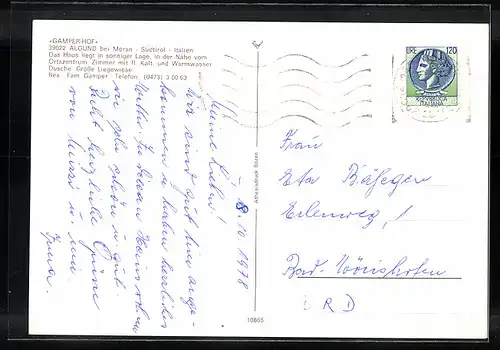 «GAMPER-HOF»
39022 ALGUND bei Meran - Südtirol - Italien
Das Haus liegt in sonniger Lage, in der Nähe vom
Ortszentrum. Zimmer mit fl. Kalt. und Warmwasser
Dusche. Große Liegewiese.
Bes. Fam. Gamper - Telefon: (0473) 3 00 63
8.10.1978
Meine Lieben!
Wir sind gut hier ange-
kommen u. haben herrliches
Wetter. In diesem Haus wohnen
wir sehr schön u. gut.
Recht herzliche Grüße
von
Athesiadruck Bozen
10865
LIRE 120
REPUBBLICA
ITALIANA
Frau
Eta Bäsegen
Erlenweg, 1
Bad-Wörishofen
B R D